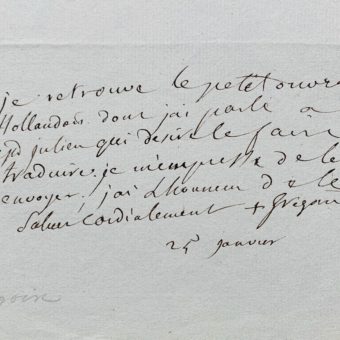 je retrouve le petit ouvr
Hollandois dont j'ai parlé a
julien qui desire le fair
traduire. je m'empresse de le
envoyer. j'ai l'honneur de le
saluer cordialement + Grégoir
25 janvier
goire